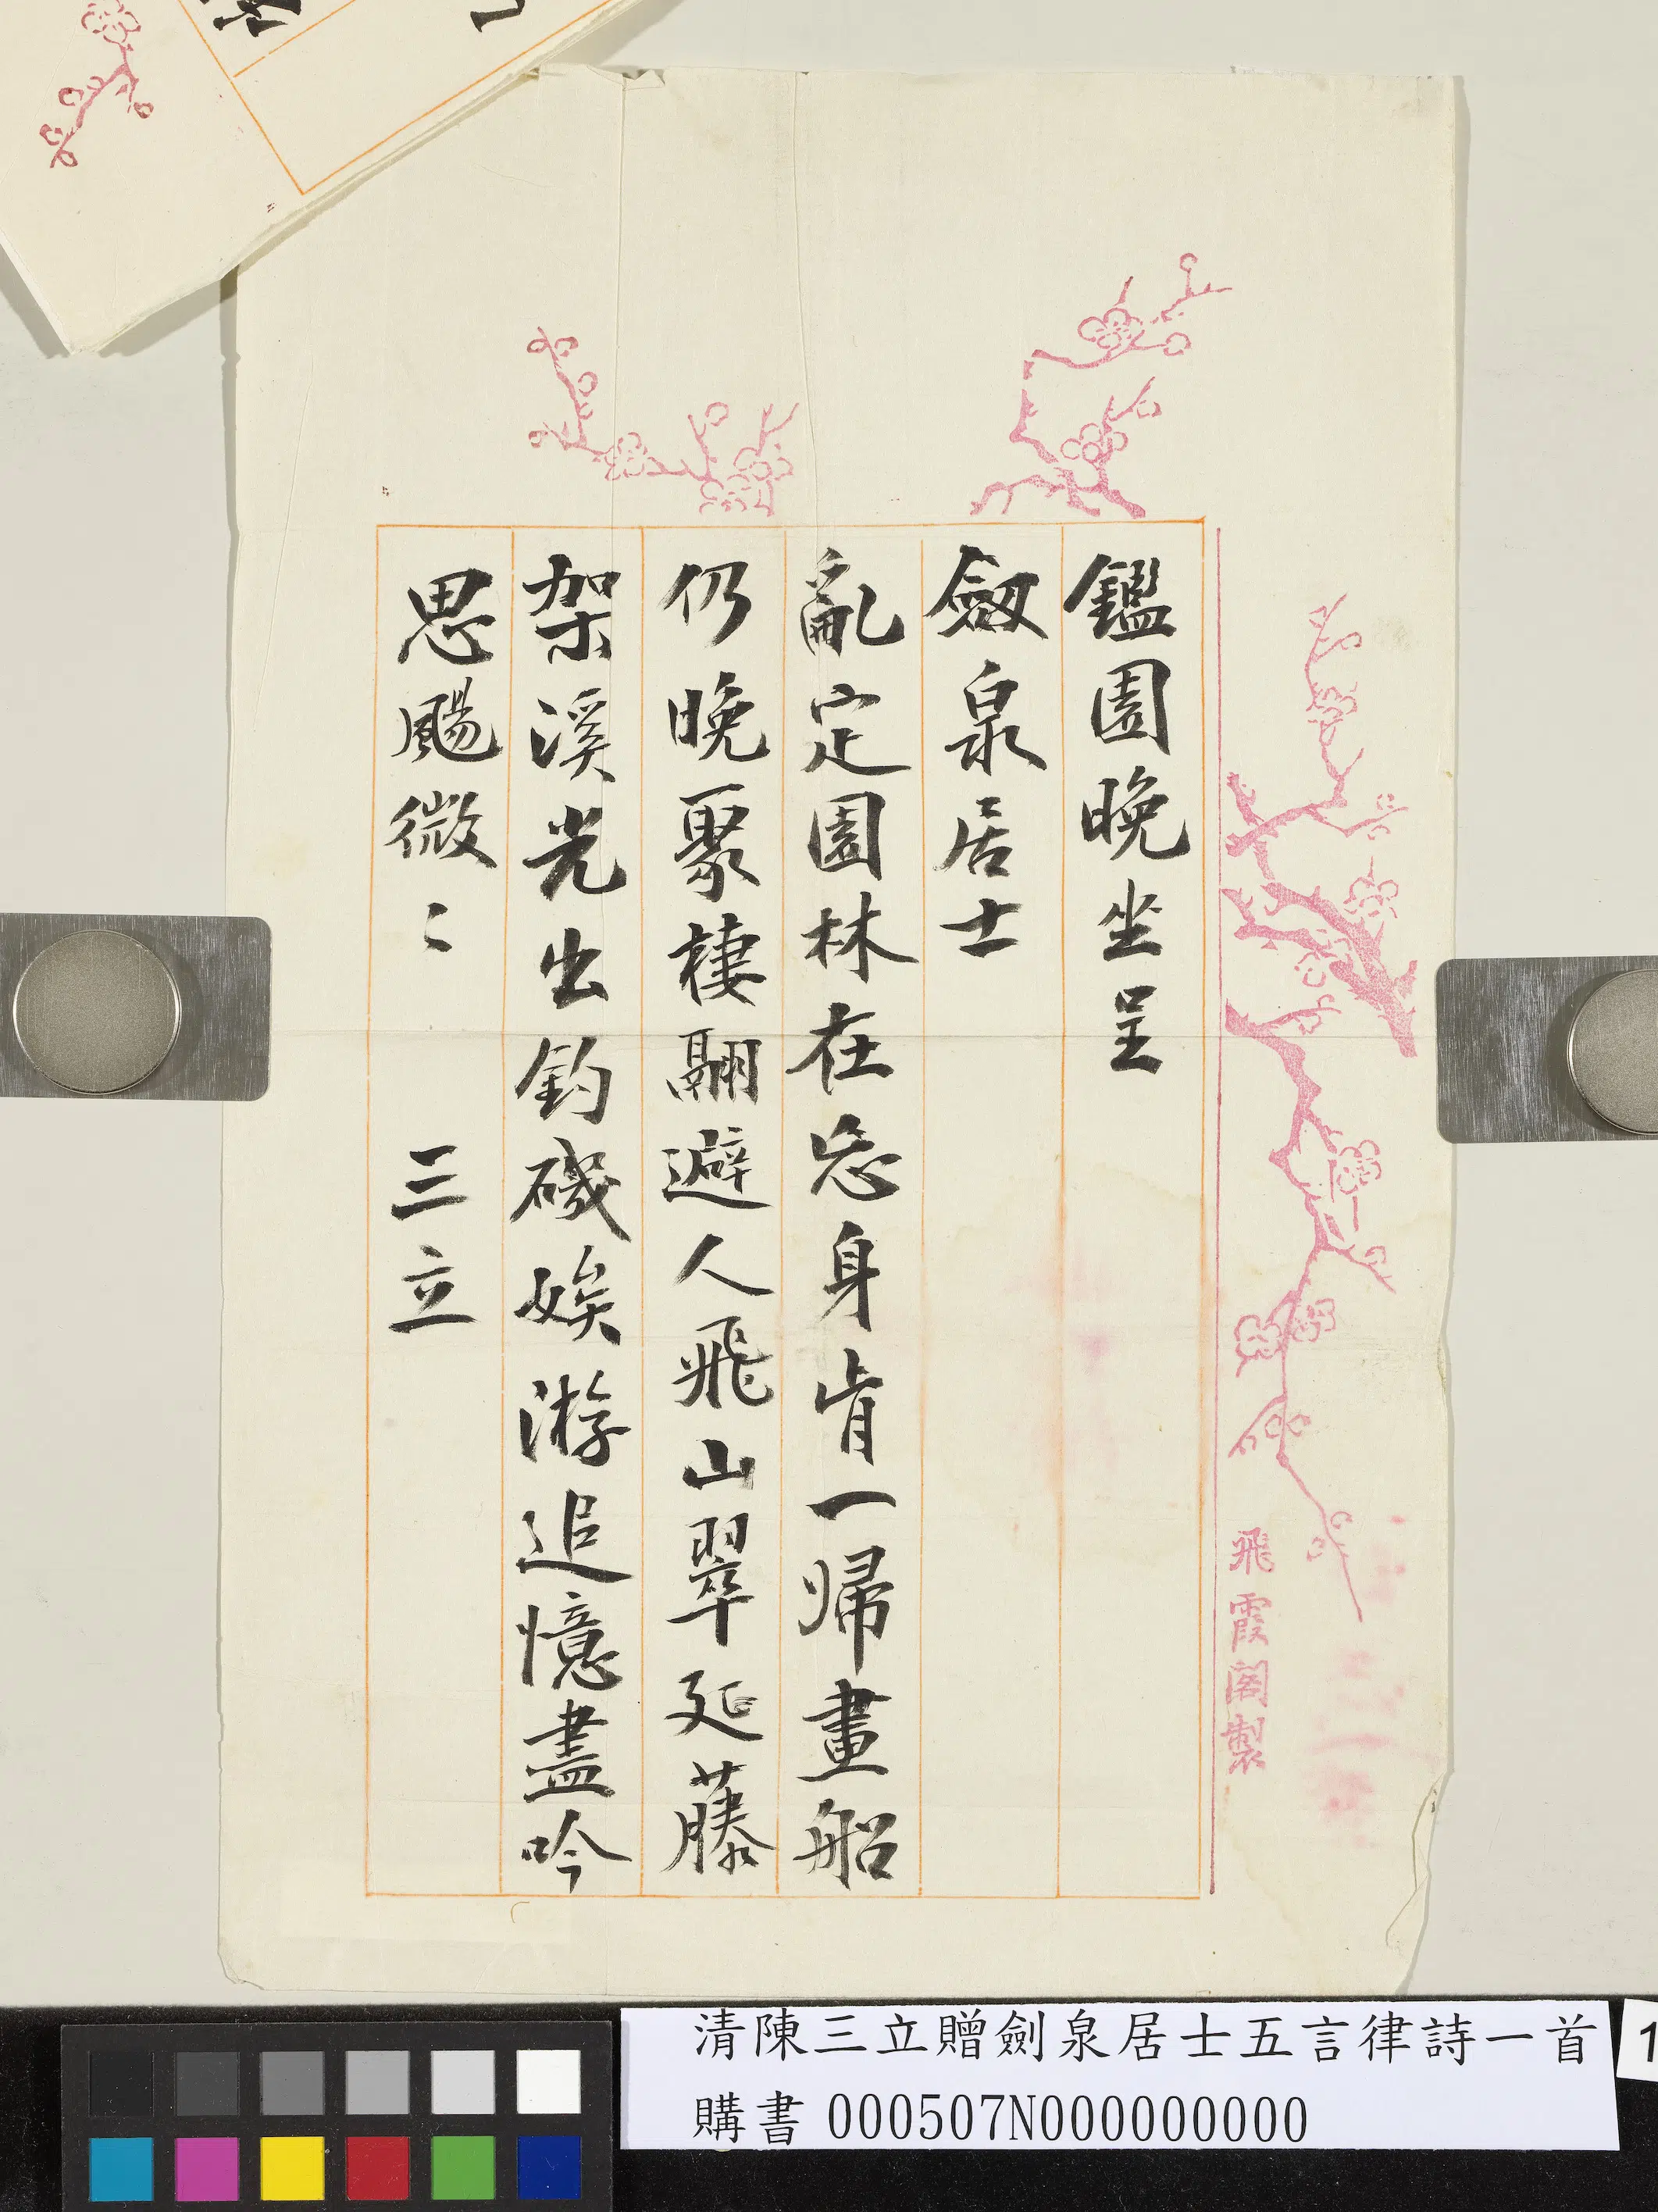 鑑園晚坐呈
劔泉居士
亂定園林在忘身肯一歸畫船
仍晚聚棲翮避人飛山翠延藤
架溪光出釣磯娭游追憶盡吟
思颺微〻
三立
飛霞閣製
清陳三立贈劍泉居士五言律詩一首
購書 000507N000000000
1